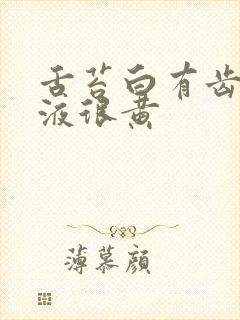 舌苔白有齿
液很黄
薄慕颜